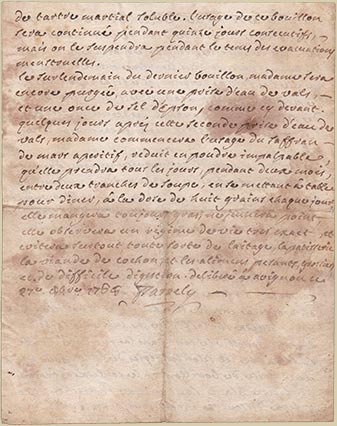 de tartre martial soluble. L'usage de ce bouillon
sera continué pendant quinze jours consecutifs,
mais on le suspendra pendant le tems des evacuations
menstruelles.
Le surlendemain du dernier bouillon, madame sera
encore purgée, avec une prise d'eau de vals,
et une once de sel d'epson, comme cy devant.
quelques jours après cette seconde prise d'eau de
vals, madame commencera l'usage du saffran
de mars aperitif, reduit en poudre impalpable
qu'elle prendra tous les jours, pendant deux mois,
entre deux tranches de soupe, en se mettant à table
pour diner, à la dose de huit grains chaque jour.
elle mangera toujours gras, ne junera point
elle observera un regime de vie tres exact et
evitera surtout toute sorte de laitage, la patisserie
la viande de cochon, et les alimens pesants, grossiers
et de difficile digestion. deliberé a avignon ce
27e 8bre 178